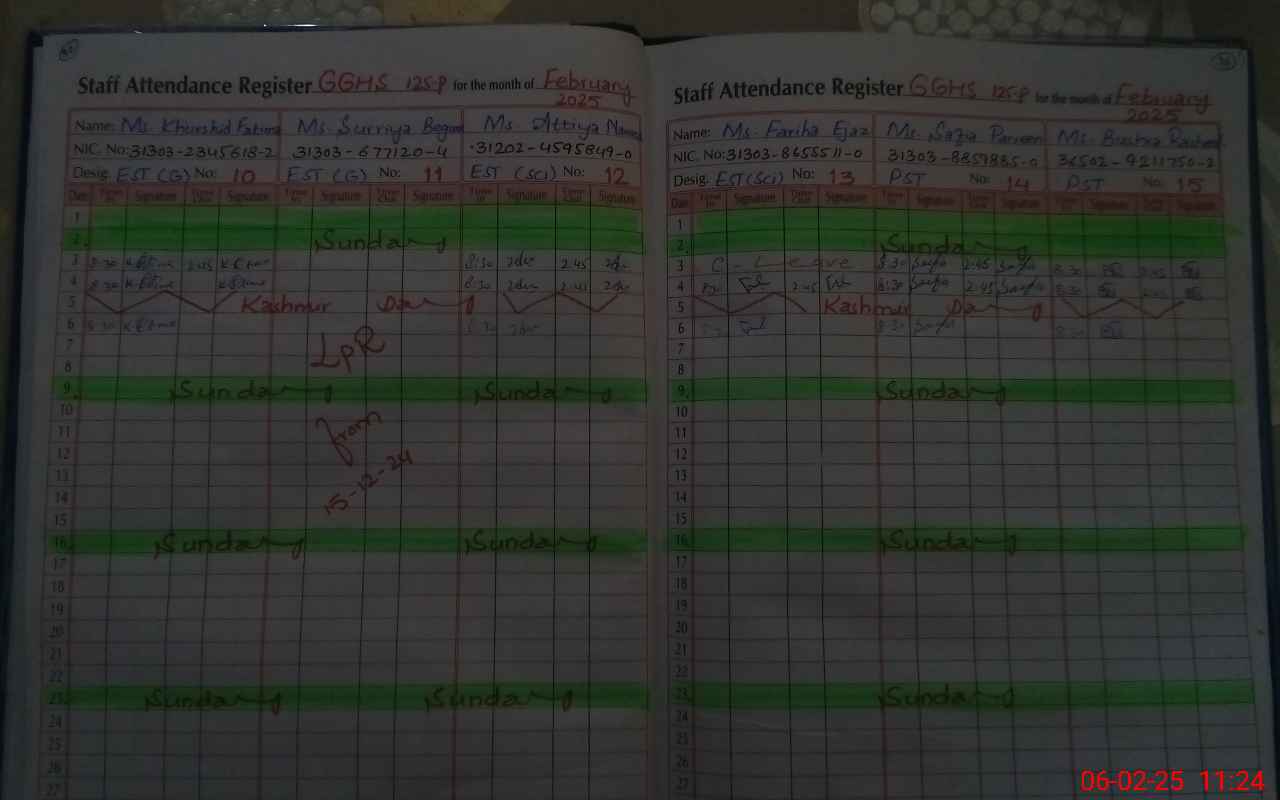 Staff Attendance Register GGHS 125-P for the month of February
2025
Name: Ms. Khurshid Fatima Ms. Surriya Begum Ms. Attiya
NIC. No: 31303-2345618-2 31303-677120-4 31202-4595849-0
Desig. EST (G) No: 10 EST (G) No: 11 EST (Sci) No: 12
Date Time In Signature Time Out Signature Time In Signature Time Out Signature Time In Signature Time Out Signature
1
2 Sunday
3 8:30 2:45 8:30 2:45
4 8:30 8:30 2:45
5 Kashmir Day
6 8:30 8:30
7 LPR
8
9 Sunday Sunday
10
11 from
12
13
14 15-12-24
15
16 Sunday Sunday
17
18
19
20
21
22
23 Sunday Sunday
24
25
26
27
Staff Attendance Register GGHS 125-P for the month of February
2025
Name: Ms. Fariha Ejaz Ms. Sazia Parveen Ms. Bushra Rasheed
NIC. No: 31303-8655511-0 31303-8859885-0 36502-9211750-2
Desig. EST (Sci) No: 13 PST No: 14 PST No: 15
Date Time In Signature Time Out Signature Time In Signature Time Out Signature Time In Signature Time Out Signature
1
2 Sunday
3 C-Leave 8:30 2:45 8:30 2:45
4 8:30 2:45 8:30 2:45 8:30
5 Kashmir Day
6 8:30 8:30
7
8
9 Sunday
10
11
12
13
14
15
16 Sunday
17
18
19
20
21
22
23 Sunday
24
25
26
27
06-02-25 11:24